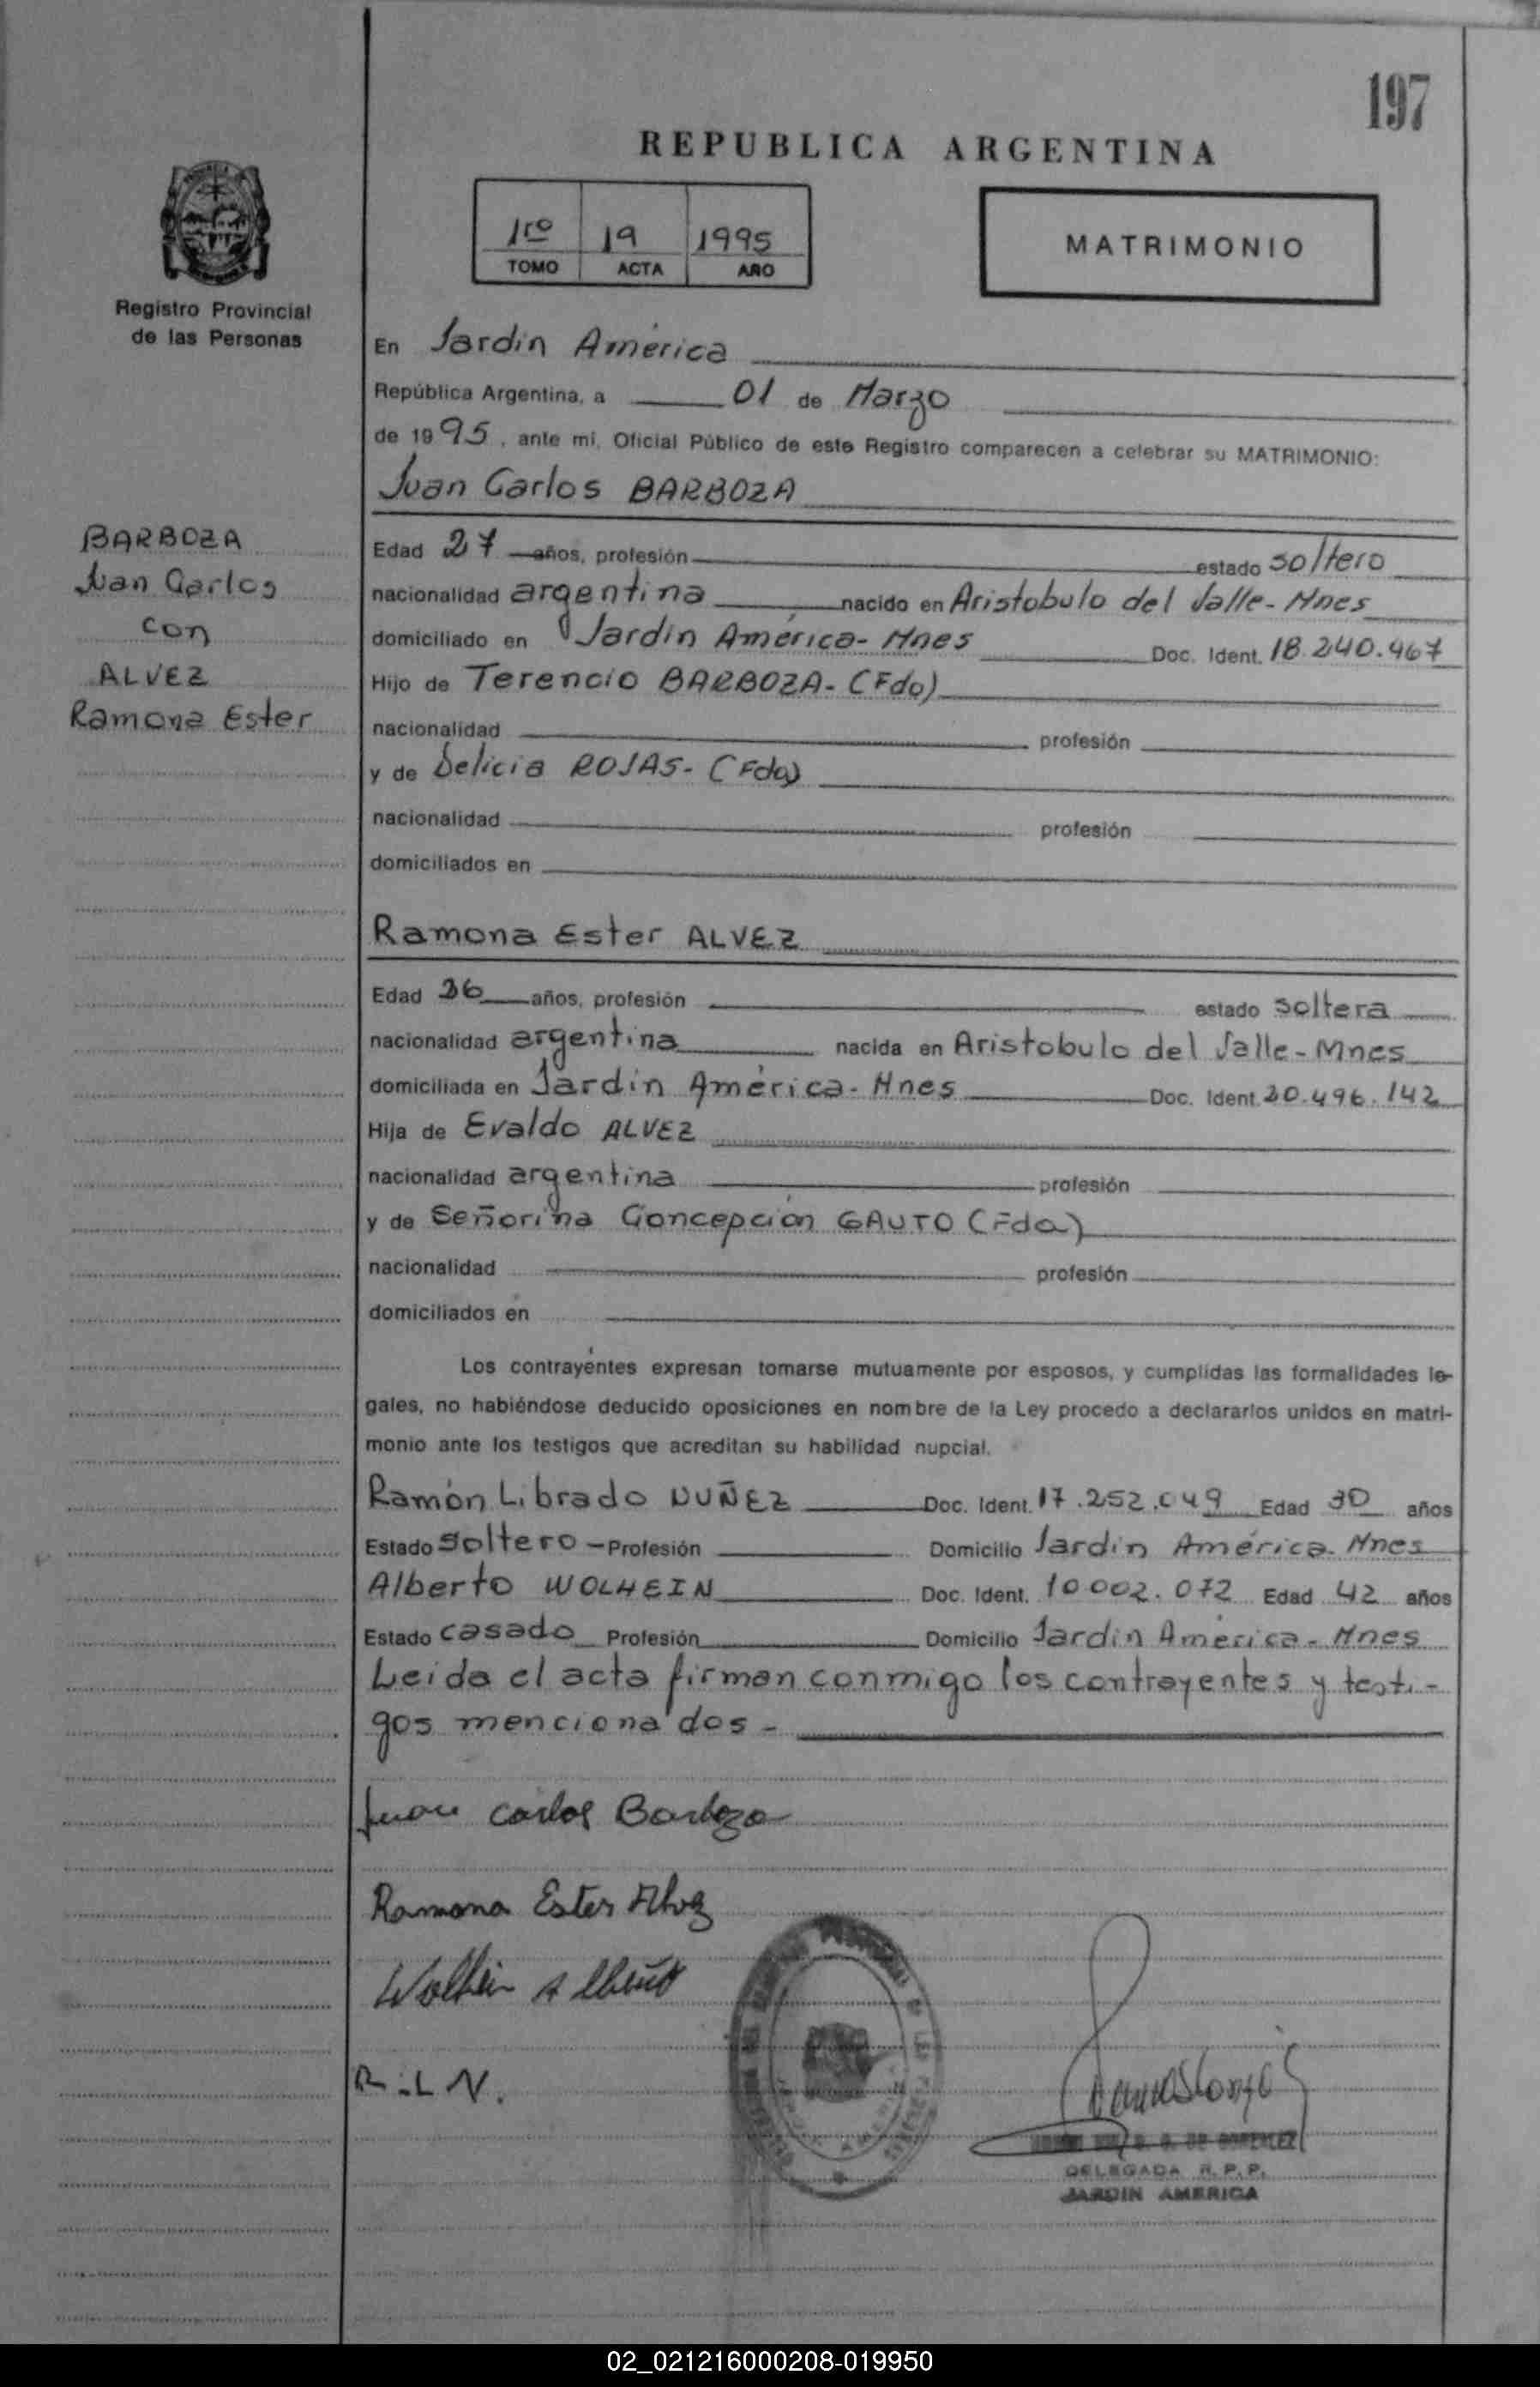 197
REPUBLICA ARGENTINA
1ro 19 1995
TOMO ACTA AÑO
MATRIMONIO
Registro Provincial
de las Personas
En Jardín América
República Argentina, a 01 de Marzo
de 1995, ante mí, Oficial Público de este Registro comparecen a celebrar su MATRIMONIO:
Juan Carlos BARBOZA
BARBOZA
Juan Carlos
con
ALVEZ
Ramona Ester
Edad 27 años, profesión estado soltero
nacionalidad argentina nacido en Aristobulo del Valle - Mnes
domiciliado en Jardín América - Mnes Doc. Ident. 18.240.467
Hijo de Terencio BARBOZA - (Fdo)
nacionalidad profesión
y de Delicia ROJAS - (Fda)
nacionalidad profesión
domiciliados en
Ramona Ester ALVEZ
Edad 26 años, profesión estado soltera
nacionalidad argentina nacida en Aristobulo del Valle - Mnes
domiciliada en Jardín América - Mnes Doc. Ident. 20.496.142
Hija de Evaldo ALVEZ
nacionalidad argentina profesión
y de Señorina Concepción GAUTO (Fda)
nacionalidad profesión
domiciliados en
Los contrayéntes expresan tomarse mutuamente por esposos, y cumplidas las formalidades le-
gales, no habiéndose deducido oposiciones en nombre de la Ley procedo a declararlos unidos en matri-
monio ante los testigos que acreditan su habilidad nupcial.
Ramón Librado NUÑEZ Doc. Ident. 17.252.049 Edad 30 años
Estado Soltero - Profesión Domicilio Jardín América - Mnes
Alberto WOLHEIN Doc. Ident. 10.002.072 Edad 42 años
Estado casado Profesión Domicilio Jardín América - Mnes
Leida el acta firman conmigo los contrayentes y testi-
gos mencionados -
Juan Carlos Barboza
Ramona Ester Alvez
Wolhein Alberto
R.L N.
DE GONZALEZ
DELEGADA R.P.P.
JARDIN AMERICA
02_021216000208-019950